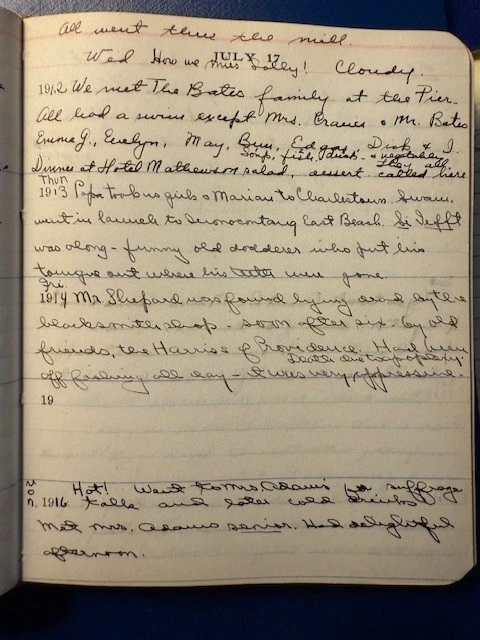 All went thru the mill.
JULY 17
Wed How we miss Sally! Cloudy.
1912 We met The Bates family at the Pier.
All had a swim except Mrs. Craver & Mr. Bates
Emma J., Evelyn, May, Bun, Edgar, Dick & I.
Soup, fish, duck & vegetables
Dinner at Hotel Mathewson salad, dessert called here
Thur
1913 Papa took us girls & Marian to Charlestown. Swam,
went in launch to Quonocontaug East Beach. Si Tefft
was along - funny old dodderer who put his
tongue out where his teeth were gone.
Fri.
1914 Mr. Shepard was found lying dead by the
blacksmith shop - soon after six - by old
friends, the Harrises of Providence. Had been
Death due to apoplexy.
off fishing all day - It was very oppressive.
19
Mon. 1916 Hot! Went to Mrs. Adams' for suffrage
talk and later cold drinks
Met Mrs. Adams senior. Had delightful
afternoon.